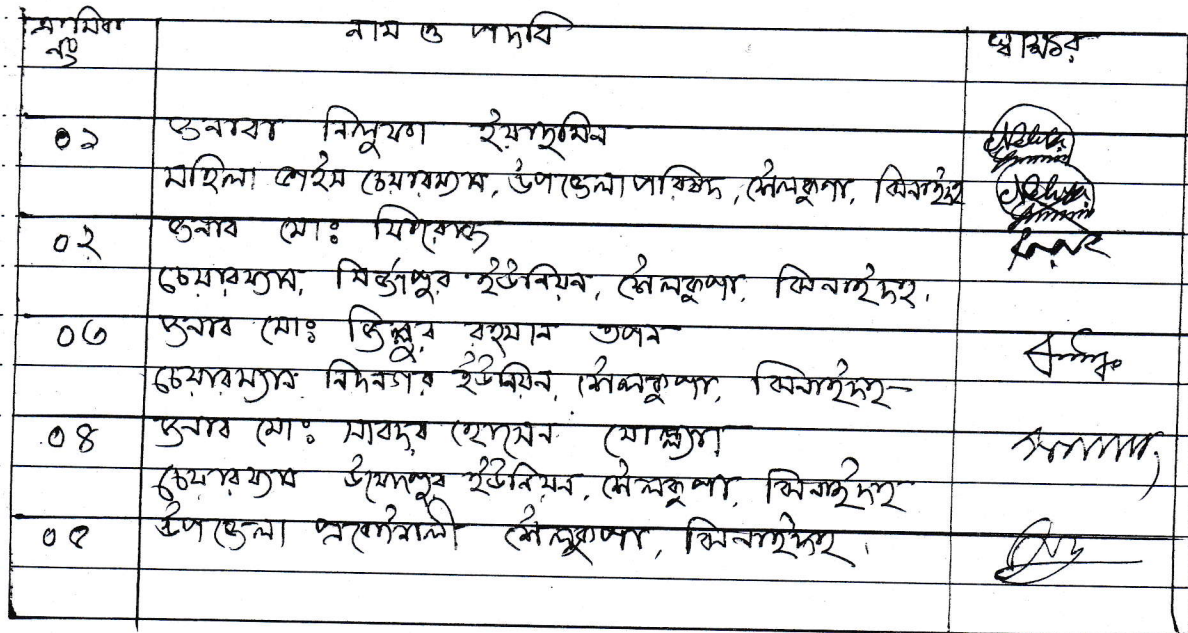 ক্রমিক নাম ও পদবি স্বাক্ষর
নং
০১ জনাবা নিলুফা ইয়াছমিন
মহিলা ভাইস চেয়ারম্যান, উপজেলা পরিষদ, শৈলকুপা, ঝিনাইদহ
০২ জনাব মোঃ ফিরোজ
চেয়ারম্যান, মির্জাপুর ইউনিয়ন, শৈলকুপা, ঝিনাইদহ।
০৩ জনাব মোঃ জিল্লুর রহমান তপন
চেয়ারম্যান ইউনিয়ন, শৈলকুপা, ঝিনাইদহ
০৪ জনাব মোঃ সাবদুর হোসেন মোল্ল্যা
চেয়ারম্যান উমেদপুর ইউনিয়ন, শৈলকুপা, ঝিনাইদহ
০৫ উপজেলা প্রকৌশলী শৈলকুপা, ঝিনাইদহ।